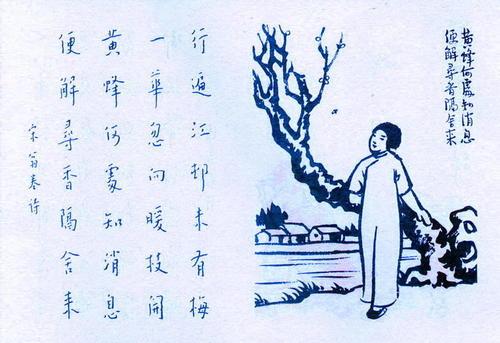 黃蜂何處知消息
便解尋香隔舍來
行遍江邨未有梅
一華忽向暖枝開
黃蜂何處知消息
便解尋香隔舍來
宋翁卷詩